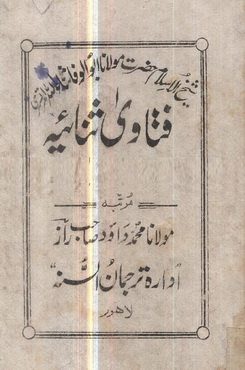 شیخ الاسلام حضرت مولانا ابوالوفا ثناء اللہ امرتسری
فتاویٰ ثنائیہ
مرتبہ
مولانا محمد داؤد صاحب راز
ادارہ ترجمان السنہ
لاہور